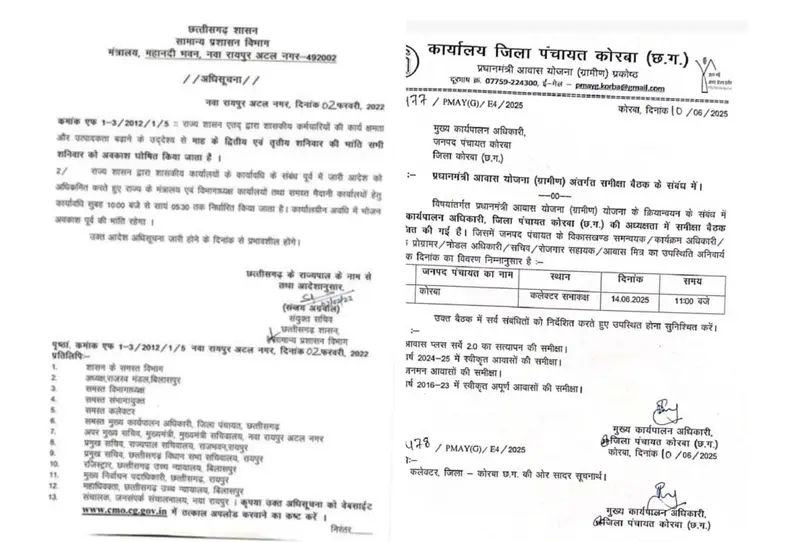 छत्तीसगढ़ शासन
सामान्य प्रशासन विभाग
मंत्रालय, महानदी भवन, नवा रायपुर अटल नगर-492002
//अधिसूचना//
नवा रायपुर अटल नगर, दिनांक 02 फरवरी, 2022
कमांक एफ 1-3/2012/1/5 :: राज्य शासन एतद् द्वारा शासकीय कर्मचारियों की कार्य क्षमता
और उत्पादकता बढ़ाने के उद्देश्य से माह के द्वितीय एवं तृतीय शनिवार की भांति सभी
शनिवार को अवकाश घोषित किया जाता है ।
2/ राज्य शासन द्वारा शासकीय कार्यालयों के कार्यावधि के संबंध पूर्व में जारी आदेश को
अधिक्रमित करते हुए राज्य के मंत्रालय एवं विभागाध्यक्ष कार्यालयों तथा समस्त मैदानी कार्यालयों हेतु
कार्यावधि सुबह 10:00 बजे से सायं 05:30 तक निर्धारित किया जाता है। कार्यालयीन अवधि में भोजन
अवकाश पूर्व की भांति रहेगा ।
उक्त आदेश अधिसूचना जारी होने के दिनांक से प्रभावशील होगे।
छत्तीसगढ़ के राज्यपाल के नाम से
तथा आदेशानुसार,
(संजय अग्रवाल)
संयुक्त सचिव
छत्तीसगढ़ शासन,
सामान्य प्रशासन विभाग
पृष्ठां. कमांक एफ 1-3/2012/1/5 नवा रायपुर अटल नगर, दिनांक 02 फरवरी, 2022
प्रतिलिपि:-
1. शासन के समस्त विभाग
2. अध्यक्ष,राजस्व मंडल,बिलासपुर
3. समस्त विभागाध्यक्ष
4. समस्त संभागायुक्त
5. समस्त कलेक्टर
6. समस्त मुख्य कार्यपालन अधिकारी, जिला पंचायत, छत्तीसगढ़
7. अपर मुख्य सचिव, मुख्यमंत्री, मुख्यमंत्री सचिवालय, नवा रायपुर अटल नगर
8. प्रमुख सचिव, राज्यपाल सचिवालय, राजभवन,रायपुर
9. प्रमुख सचिव, छत्तीसगढ़ विधान सभा सचिवालय,रायपुर
10. रजिस्ट्रार, छत्तीसगढ़ उच्च न्यायालय, बिलासपुर
11. मुख्य निर्वाचन पदाधिकारी, छत्तीसगढ़, रायपुर
12. महाधिवक्ता, छत्तीसगढ़ उच्च न्यायालय, बिलासपुर
13. संचालक, जनसंपर्क संचालनालय, नवा रायपुर । कृपया उक्त अधिसूचना को वेबसाईट
www.cmo.cg.gov.in में तत्काल अपलोड करवाने का कष्ट करें ।
निरंतर....
कार्यालय जिला पंचायत कोरबा (छ.ग.)
प्रधानमंत्री आवास योजना (ग्रामीण) प्रकोष्ठ
दूरभाष क्र. 07759-224300, ई-मेल - pmayg.korba@gmail.com
477 / PMAY(G)/ E4/2025 कोरबा, दिनांक 10 /06/2025
मुख्य कार्यपालन अधिकारी,
जनपद पंचायत कोरबा
जिला कोरबा (छ.ग.)
:- प्रधानमंत्री आवास योजना (ग्रामीण) अंतर्गत समीक्षा बैठक के संबंध में।
--00--
विषयांतर्गत प्रधानमंत्री आवास योजना (ग्रामीण) योजना के क्रियान्वयन के संबंध में
कार्यपालन अधिकारी, जिला पंचायत कोरबा (छ.ग.) की अध्यक्षता में समीक्षा बैठक
जित की गई है। जिसमें जनपद पंचायत के विकासखण्ड समन्वयक/कार्यक्रम अधिकारी/
प्रोग्रामर/नोडल अधिकारी/सचिव/रोजगार सहायक/आवास मित्र का उपस्थिति अनिवार्य
क दिनांक का विवरण निम्नानुसार है :-
जनपद पंचायत का नाम स्थान दिनांक समय
कोरबा कलेक्टर सभाकक्ष 14.06.2025 11:00 बजे
उक्त बैठक में सर्व संबंधितों को निर्देशित करते हुए उपस्थित होना सुनिश्चित करें।
आवास प्लस सर्वे 2.0 का सत्यापन की समीक्षा।
र्ष 2024-25 में स्वीकृत आवासों की समीक्षा।
जनमन आवासों की समीक्षा।
र्ष 2016-23 में स्वीकृत अपूर्ण आवासों की समीक्षा।
मुख्य कार्यपालन अधिकारी,
जिला पंचायत कोरबा (छ.ग.)
कोरबा, दिनांक 10 /06/2025
478 / PMAY(G)/ E4/2025
:-
कलेक्टर, जिला - कोरबा छ.ग. की ओर सादर सूचनार्थ।
मुख्य कार्यपालन अधिकारी,
जिला पंचायत कोरबा (छ.ग.)